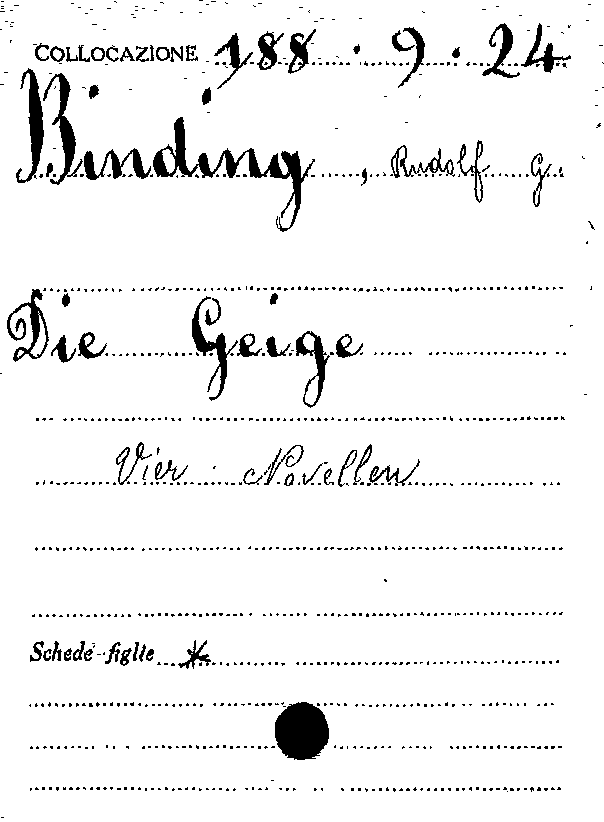 COLLOCAZIONE 188.9.24
Binding, Rudolf G.
Die Geige
Vier Novellen
Schede-figlie *